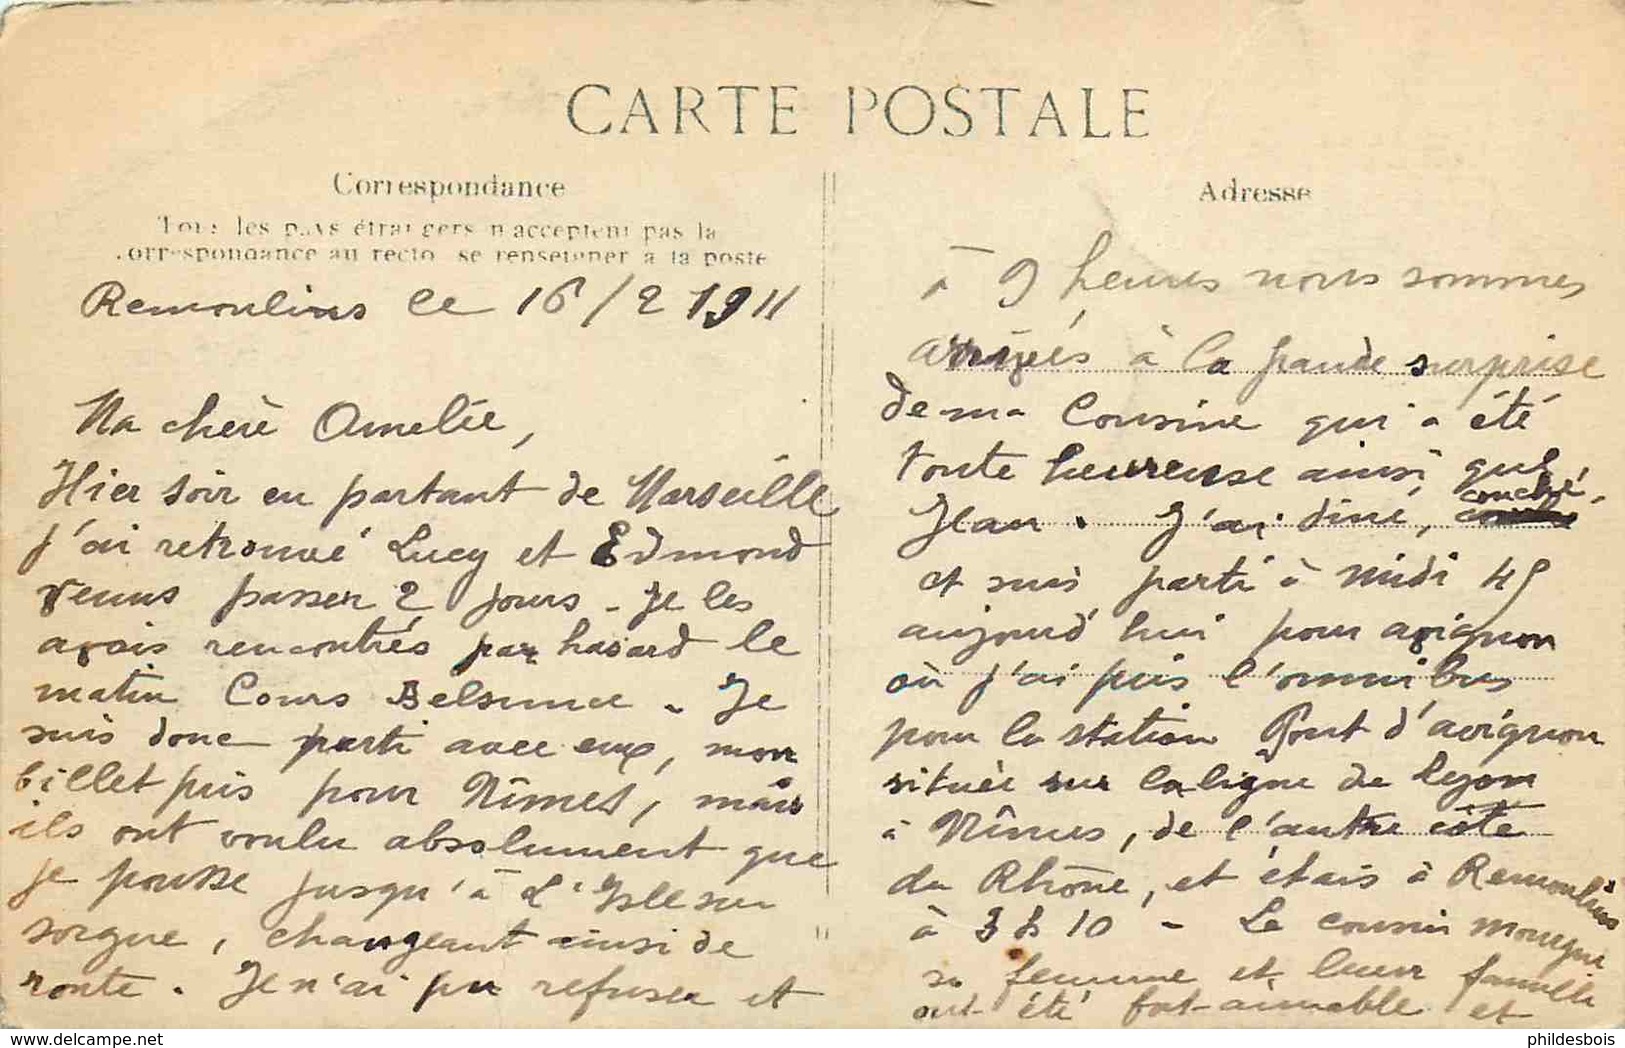 CARTE POSTALE
Correspondance
Tous les pays étrangers n'acceptent pas la
correspondance au recto se renseigner à la poste
Remoulins le 16/2 1911
Ma chère Amelie,
Hier soir en partant de Marseille
j'ai retrouvé Lucy et Edmond
venus passer 2 jours - Je les
avais rencontrés par hasard le
matin Cours Belsunce - Je
suis donc parti avec eux, mon
billet pris pour Nîmes, mais
ils ont voulu absolument que
je pousse jusqu'à L'Isle sur
sorgue, changeant ainsi de
route. Je n'ai pu refuser et
Adresse
à 9 heures nous sommes
arrivés à la grande surprise
de ma Cousine qui a été
toute heureuse ainsi que
Jean. J'ai diné, couché,
et suis parti à midi 45
aujourd'hui pour avignon
où j'ai pris l'omnibus
pour la station Pont d'avignon
située sur la ligne de Lyon
à Nîmes, de l'autre côté
du Rhône, et étais à Remoulins
à 3 h 10 - Le cousin
sa femme et leur famille
ont été fort aimable et
phildesbois